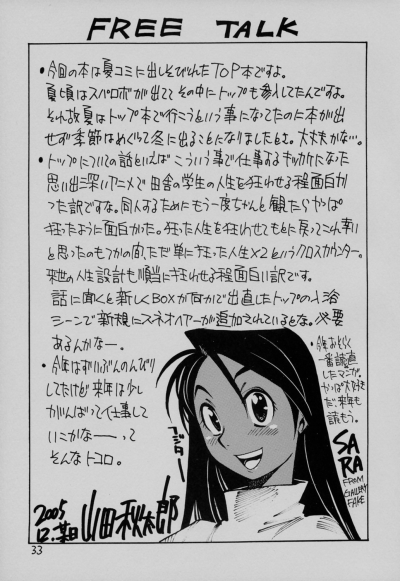 FREE TALK
・今回の本は夏コミに出しそびれたTOP本ですよ。
夏頃はスパロボが出ててその中にトップも参入してたんですよ。
それ故夏はトップ本で行こうという事になってたのに本が出
せず季節はめぐって冬に出ることになりましたとさ。大丈夫かな…。
・トップについての話といえばこういう事で仕事するキッカケになった
思い出深いアニメで田舎の学生の人生を狂わせる程面白か
った訳ですな。同人するためにもう一度ちゃんと観たらやっぱ
狂ったように面白かった。狂った人生を狂わせてもとに戻ってこれ幸い
と思ったのもつかの間、ただ単に狂った人生×2というクロスカウンター。
来世の人生設計も順当に狂わせる程面白い訳です。
話に聞くと新しくBOXか何かで出直したトップの入浴
シーンで新規にスネオヘアーが追加されているとな。必要
あるんかなー。
・今年はずいぶんのんびり
してたけど来年は少し
がんばって仕事して
いこかなーーって
そんなトコロ。
・今年おそらく
一番読直
したマンガ。
やっぱ大好き
だ、来年も
読もう。
SARA
FROM
GALLERY
FAKE
フジター
2005
12.某日
山田秋太郎
33